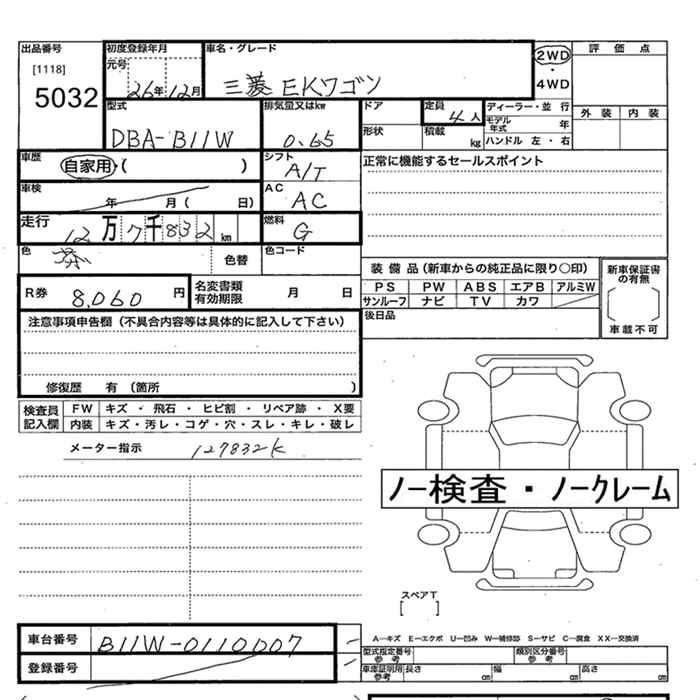 出品番号 初度登録年月 車名・グレード 2WD 評価点
[1118] 元号 ・
5032 26年 12月 三菱 EKワゴン 4WD
型式 排気量又はkw ドア 定員 4人 ディーラー・並行 外装 内装
DBA-B11W 0.65 形状 積載 kg モデル年式 年
ハンドル 左・右
車歴 自家用・( ) シフト A/T 正常に機能するセールスポイント
車検 年 月( 日) AC AC
走行 12万7千832km 燃料 G
色 茶 色替 色コード
装備品(新車からの純正品に限り○印) 新車保証書の有無
R券 8,060円 名変書類有効期限 月 日 PS PW ABS エアB アルミW
サンルーフ ナビ TV カワ
注意事項申告欄(不具合内容等は具体的に記入して下さい) 後日品 車載不可
修復歴 有(箇所 )
検査員 FW キズ・飛石・ヒビ割・リペア跡・X要
記入欄 内装 キズ・汚レ・コゲ・穴・スレ・キレ・破レ
メーター指示 127832K
ノー検査・ノークレーム
スペアT
[ ]
車台番号 B11W-0110007 A―キズ E―エクボ U―凹み W―補修跡 S―サビ C―腐食 XX―交換済
型式指定番号 参考 類別区分番号 参考
登録番号 車庫証明用 参考 長さ cm 幅 cm 高さ cm